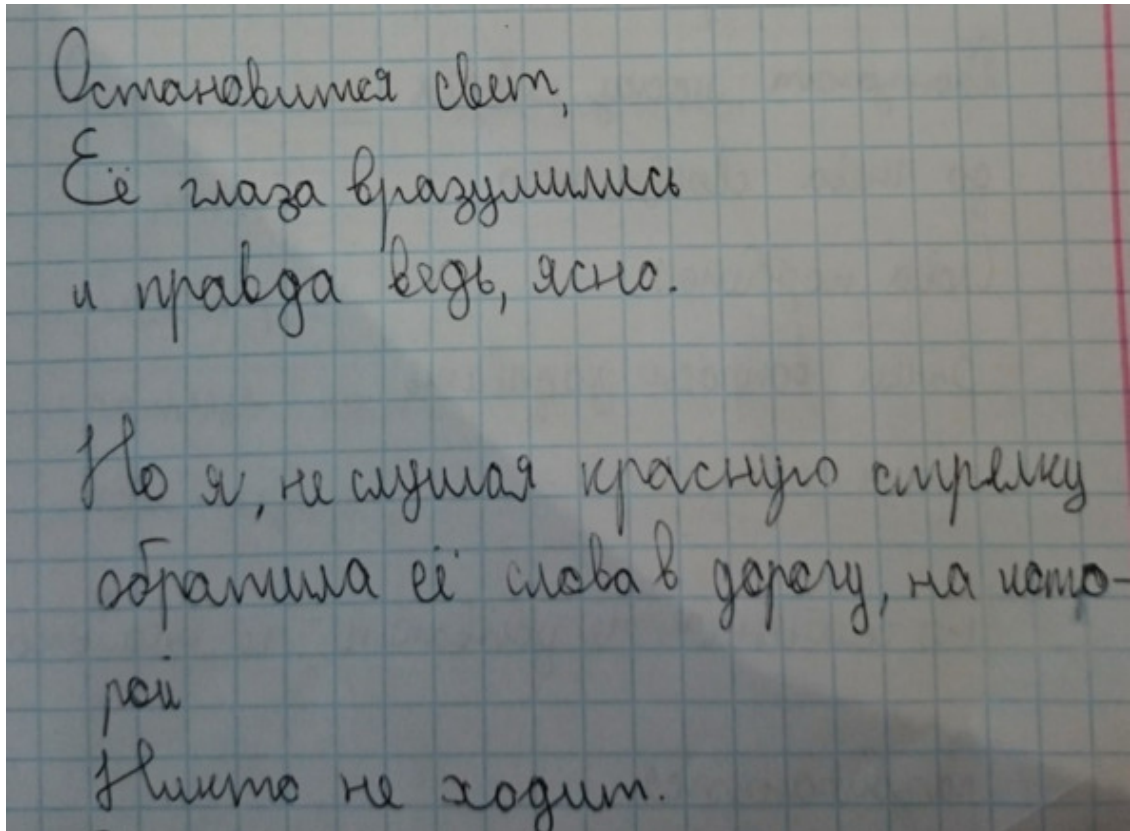 Остановится свет,
Её глаза вразумились
и правда ведь, ясно.
Но я, не слушая красную стрелку
обратила её слова в дорогу, на кото-
рой
Никто не ходит.